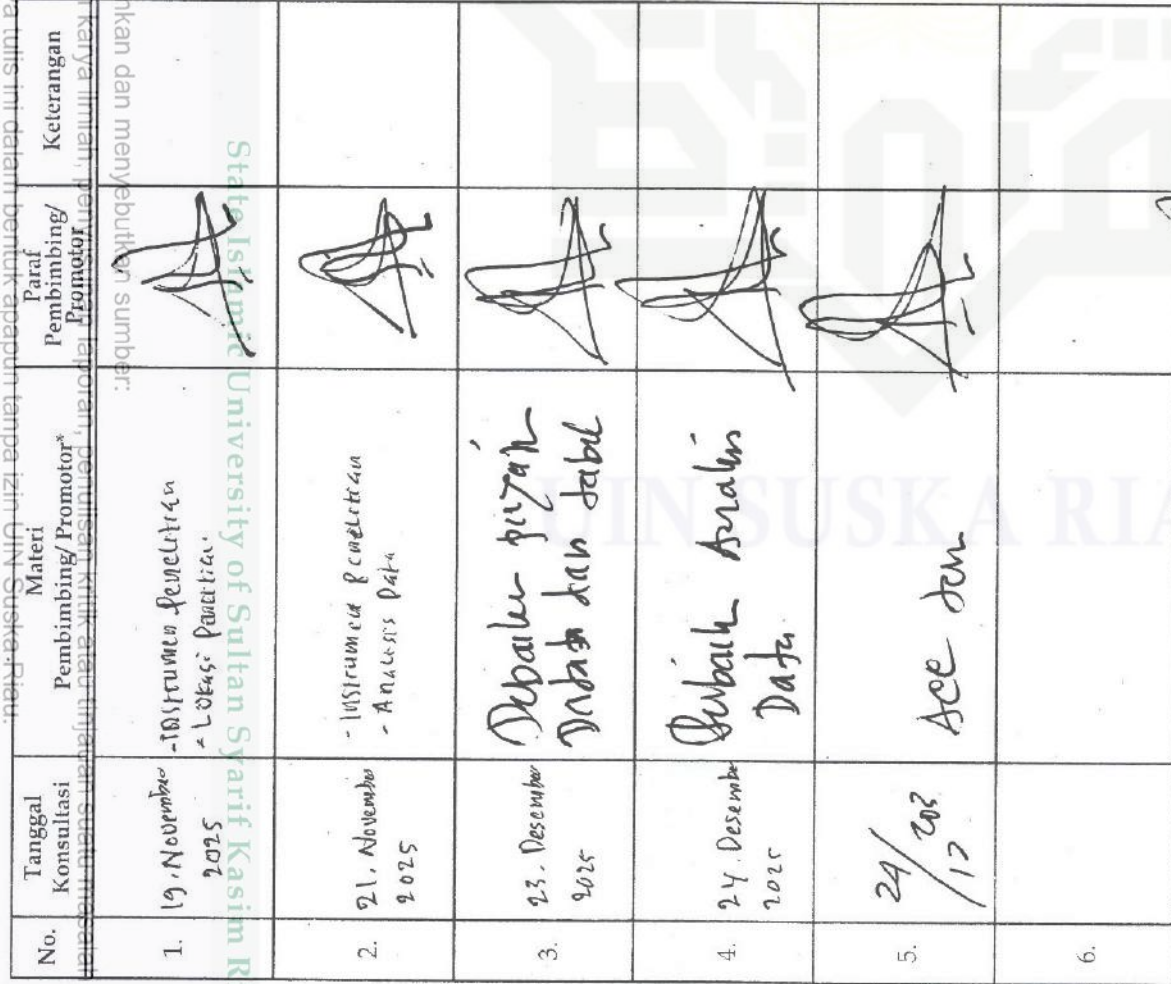 No.
Tanggal
Konsultasi
Materi
Pembimbing/ Promotor*
Paraf
Pembimbing/
Promotor
Keterangan
1.
19. November
2025
- Instrumen Penelitian
- Lokasi Penelitian
2.
21. November
2025
- Instrumen Penelitian
- Analisis Data
3.
23. Desember
2025
Data dan tabel
4.
24. Desember
2025
Analisis
Data
5.
24/12
Acc
6.
State Islamic University of Sultan Syarif Kasim R
UIN SUSKA RIA
nkan dan menyebutkan sumber:
karya ilmiah, penyusunan laporan, penulisan kritik atau tinjauan suatu masalah
a tulis ini dalam bentuk apapun tanpa izin UIN Suska Riau.